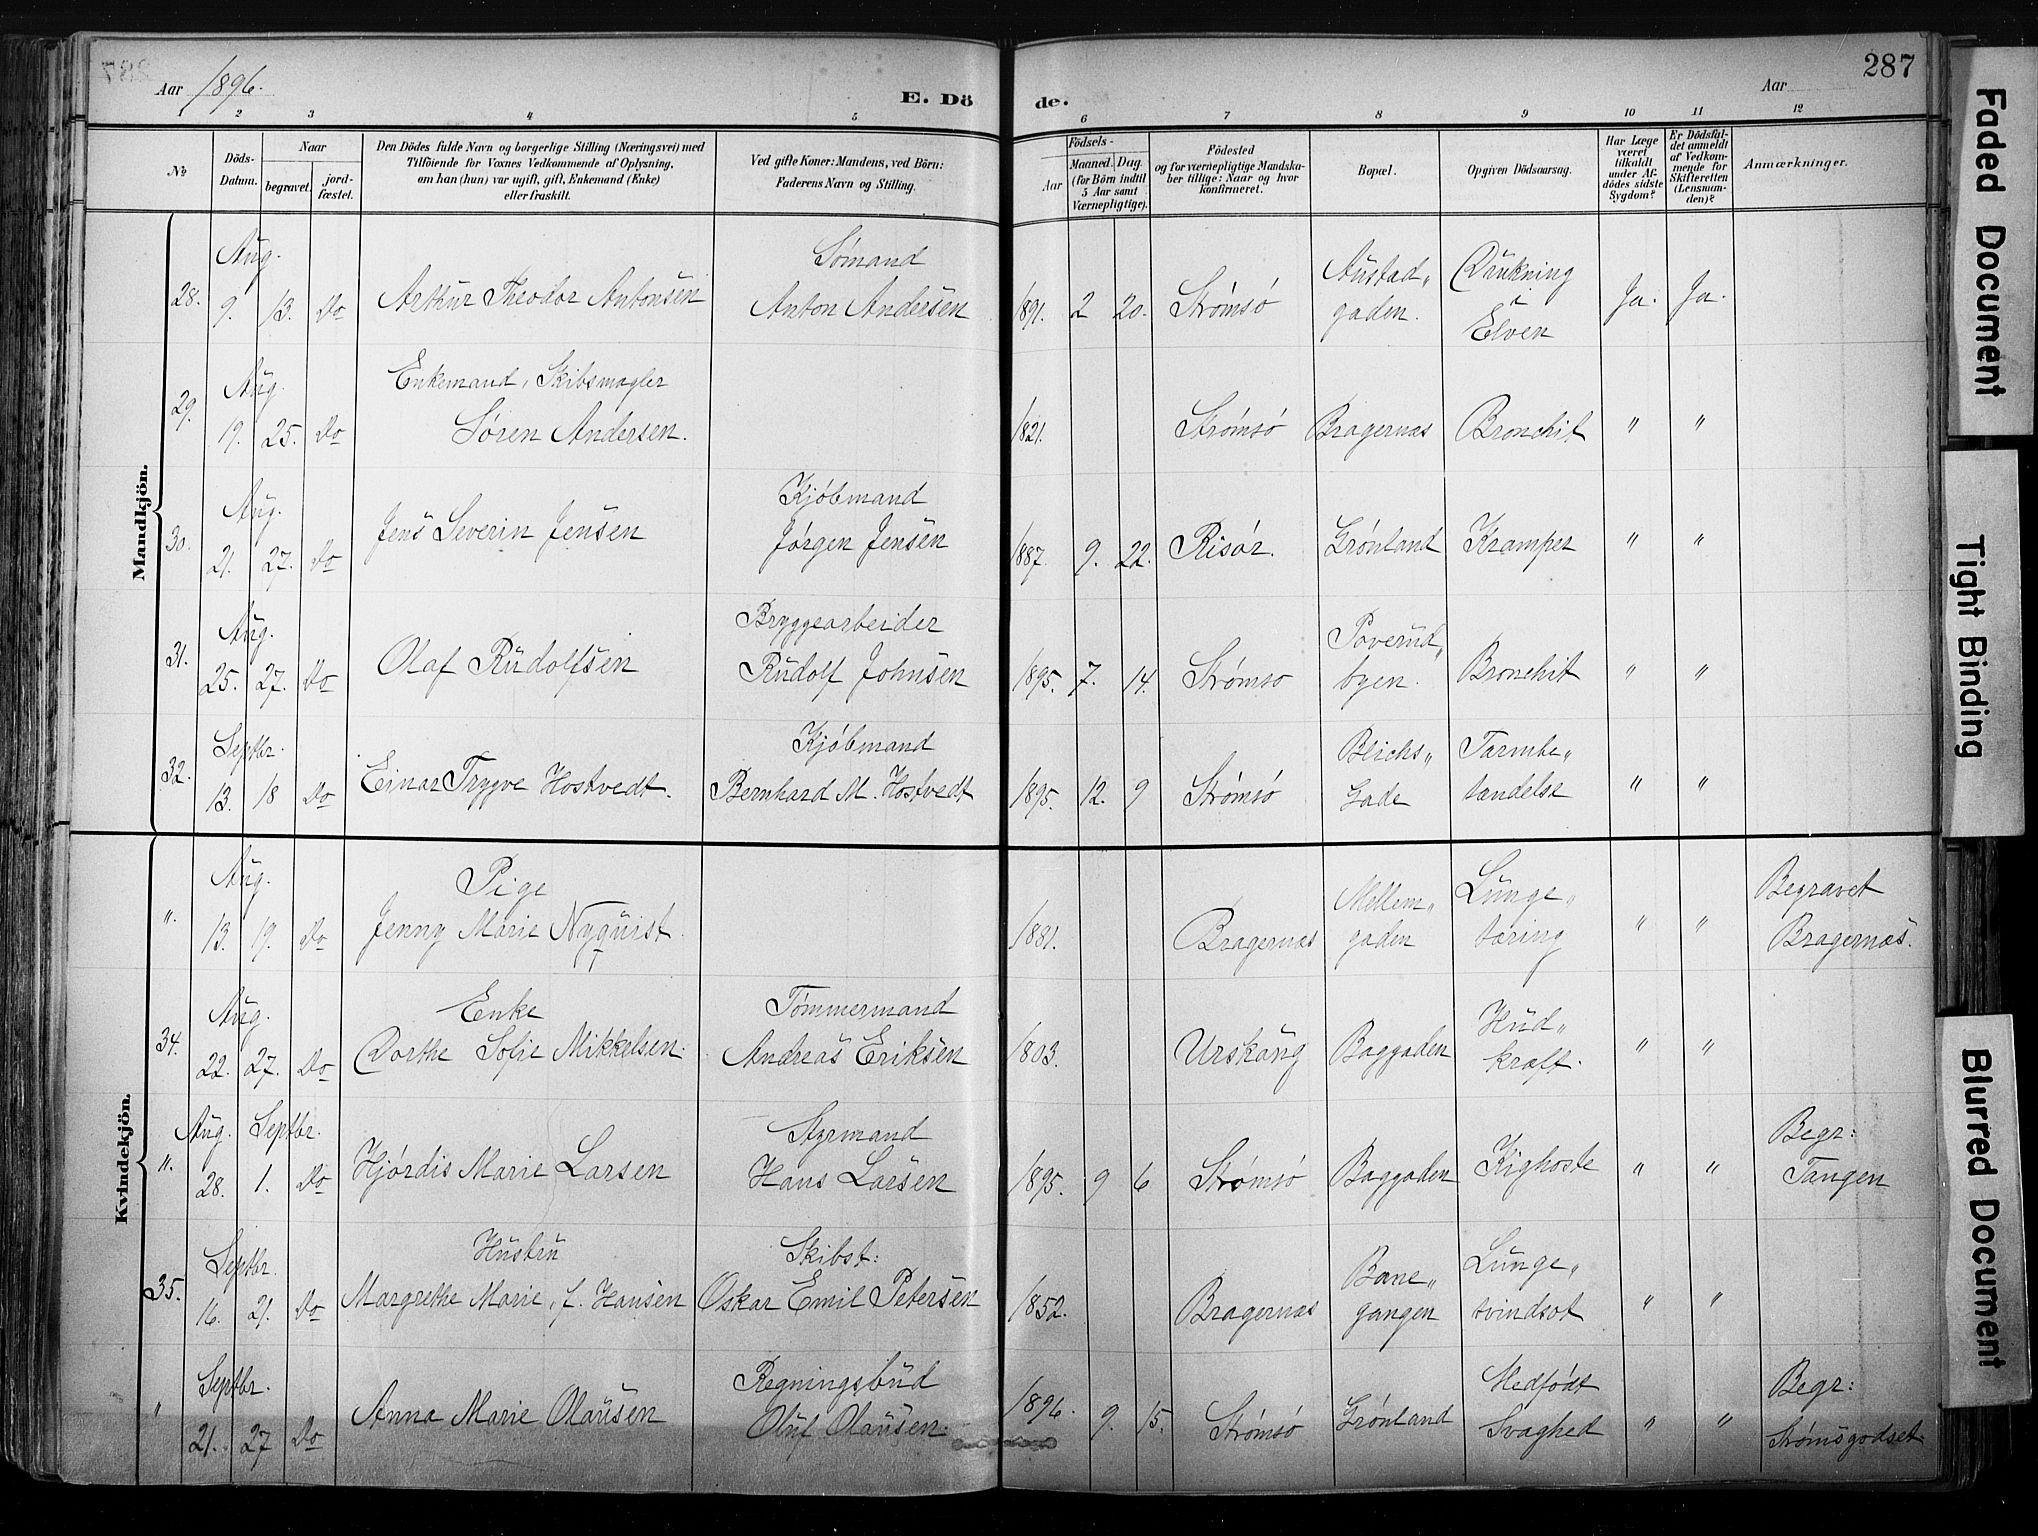 Aar 1896.
E. Dö
de.
Aar
287
1 2 3 4 5 6 7 8 9 10 11 12
No
Döds-Datum.
Naar
begravet.
jord-fæstet.
Den Dödes fulde Navn og borgerlige Stilling (Næringsvei) med
Tilföiende for Voxnes Vedkommende af Oplysning,
om han (hun) var ugift, gift, Enkemand (Enke)
eller fraskilt.
Ved gifte Koner: Mandens, ved Börn:
Faderens Navn og Stilling.
Födsels-
Aar
Maaned. Dag.
(for Börn indtil
5 Aar samt
Værnepligtige).
Födested
og for værnepligtige Mandska-
ber tillige: Naar og hvor
konfirmeret.
Bopæl.
Opgiven Dödsaarsag.
Har Læge
været
tilkaldt
under Af-
dödes sidste
Sygdom?
Er Dödsfal-
det anmeldt
af Vedkom-
mende for
Skifteretten
(Lensman-
den)?
Anmærkninger.
Mandkjön.
Aug. Sømand Austad„ Drukning
28. 9. 13. Do Arthur Theodor Antonsen Anton Andersen 1891. 2 20. Strømsø gaden. i Elven Ja. Ja.
Aug. Enkemand, Skibsmægler
29. 19. 25. Do Søren Andersen. 1821. Strømsø Bragernæs Bronchit " "
Aug. Kjøbmand
30. 21. 27. Do Jens Severin Jensen Jørgen Jensen 1887. 9. 22. Risør. Grønland Kramper " "
Aug. Bryggearbeider Poverud„
31. 25. 27. Do Olaf Rudolfsen Rudolf Johnsen 1895. 7. 14. Strømsø byen. Bronchit " "
Septbr. Kjøbmand Bleichs„ Tarmbe„
32. 13. 18 Do Einar Trygve Hostvedt. Bernhard M. Hostvedt 1895. 12. 9 Strømsø Gade tændelse " "
Kvindekjön.
Aug. Pige Mellem„ Lunge„ Begravet
". 13. 19. Do Jenny Marie Nyquist. 1881. Bragernæs gaden tæring " " Bragernæs.
Aug. Enke Tømmermand Hud„
34. 22. 27. Do Dorthe Sofie Mikkelsen. Andreas Eriksen 1803. Urskaug Baggaden kræft. " "
Aug. Septbr. Styrmand Begr:
". 28. 1. Do Hjørdis Marie Larsen Hans Larsen 1895. 9 6 Strømsø Baggaden Kighoste " " Tangen
Septbr. Hustru Skibst: Bane„ Lunge„
35. 16. 21. Do Margrethe Marie, f. Hansen Oskar Emil Petersen 1852. Bragernæs gangen svindsot " "
Septbr. Regningsbud Medfødt Begr:
" 21. 27 Do Anna Marie Olausen Oluf Olausen. 1896. 9. 15. Strømsø Grønland Svaghed " " Strømsgodset.
Faded Document
Tight Binding
Blurred Document